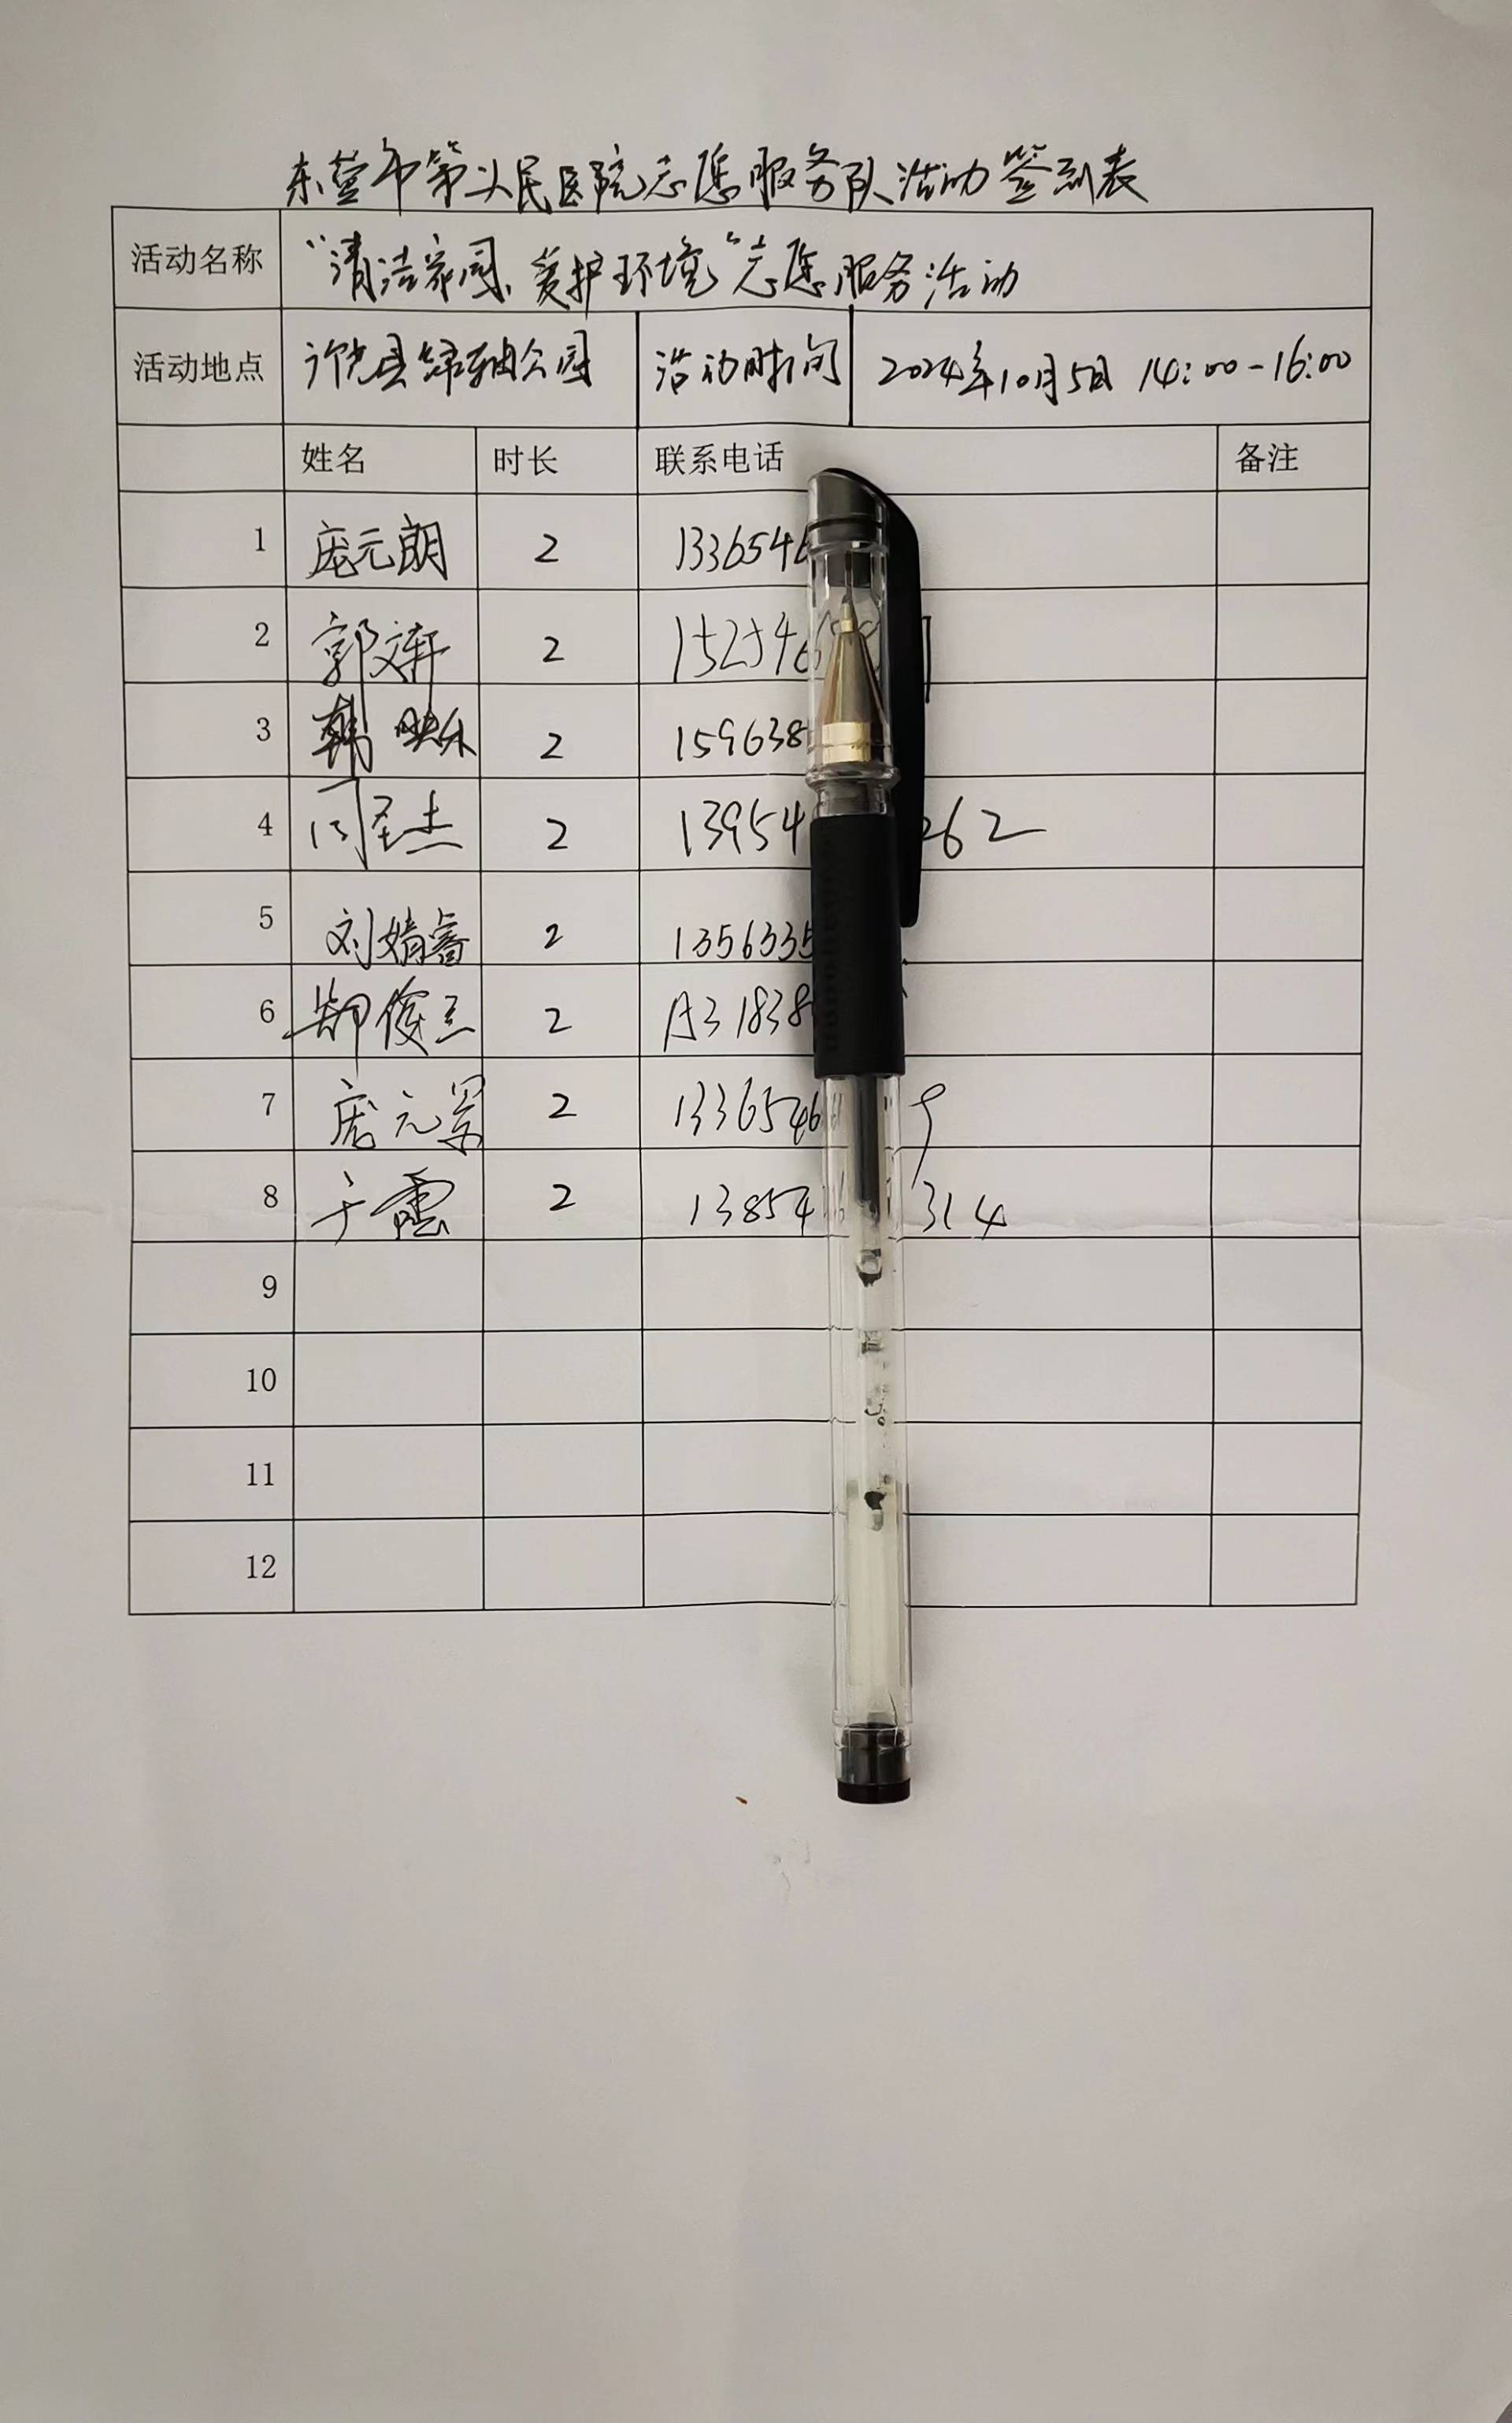 东营市第人民医院志愿服务队活动签到表
活动名称 “清洁家园、爱护环境”志愿服务活动
活动地点 公园 活动时间 2024年10月5日 14:00-16:00
姓名 时长 联系电话 备注
1 庞元朗 2 1336546
2 郭文轩 2 152546
3 韩 2 159638
4 闫圣杰 2 13954 262
5 刘婧睿 2 1356335
6 俊 2 31838
7 庞元 2 1336546 9
8 于 2 13854 314
9
10
11
12